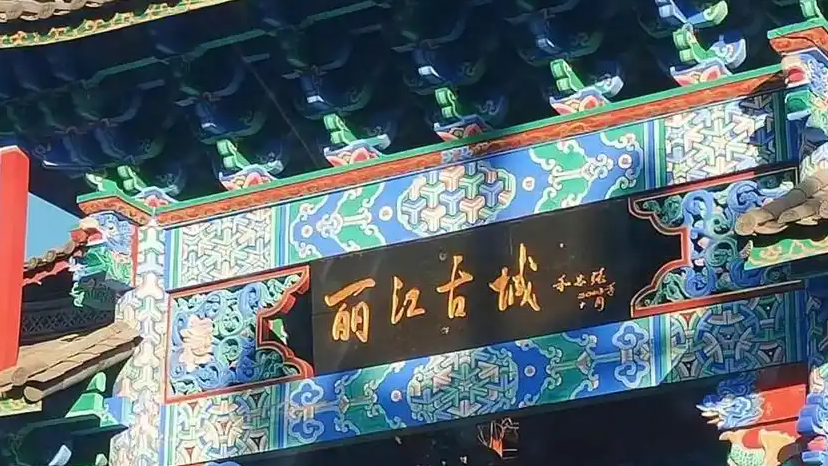 丽江古城